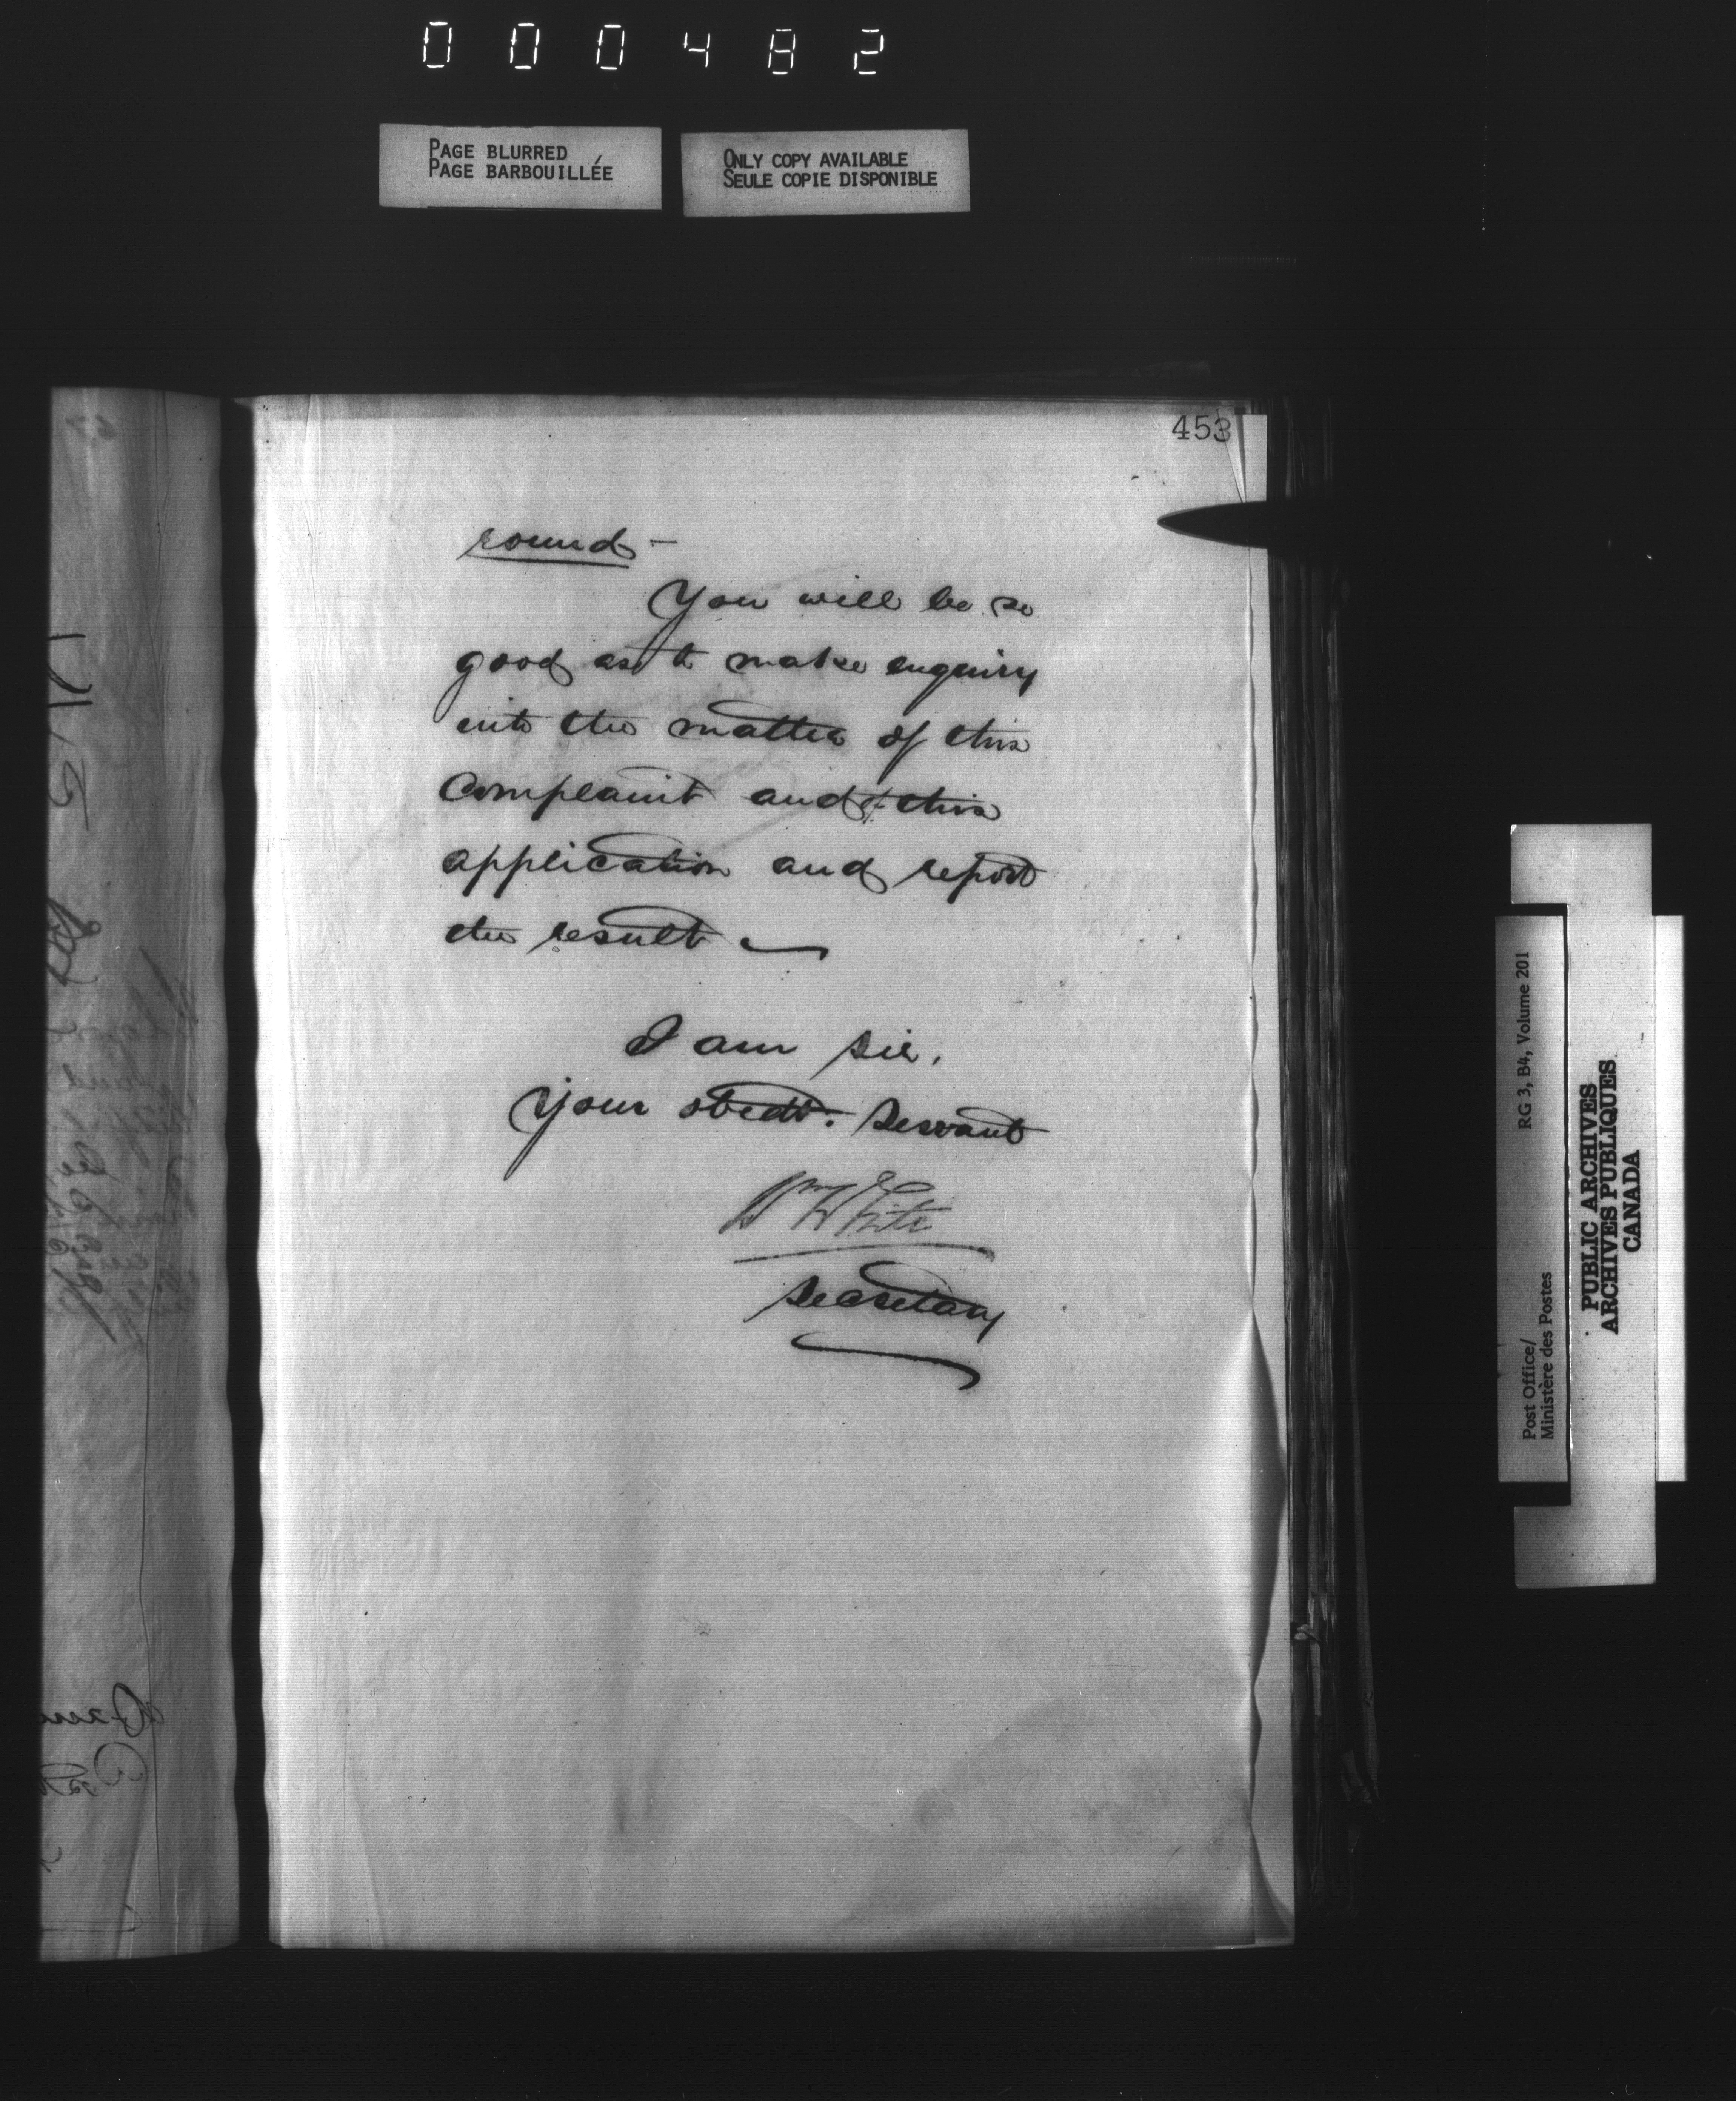 000482
PAGE BLURRED
PAGE BARBOUILLÉE
ONLY COPY AVAILABLE
SEULE COPIE DISPONIBLE
453
round -
You will be so
good as to make enquiry
into the matter of this
Complaint and of this
application and report
the result
I am sir,
Your obedt. Servant
Wm White
Secretary
RG 3, B4, Volume 201
Post Office/
Ministère des Postes
PUBLIC ARCHIVES
ARCHIVES PUBLIQUES
CANADA